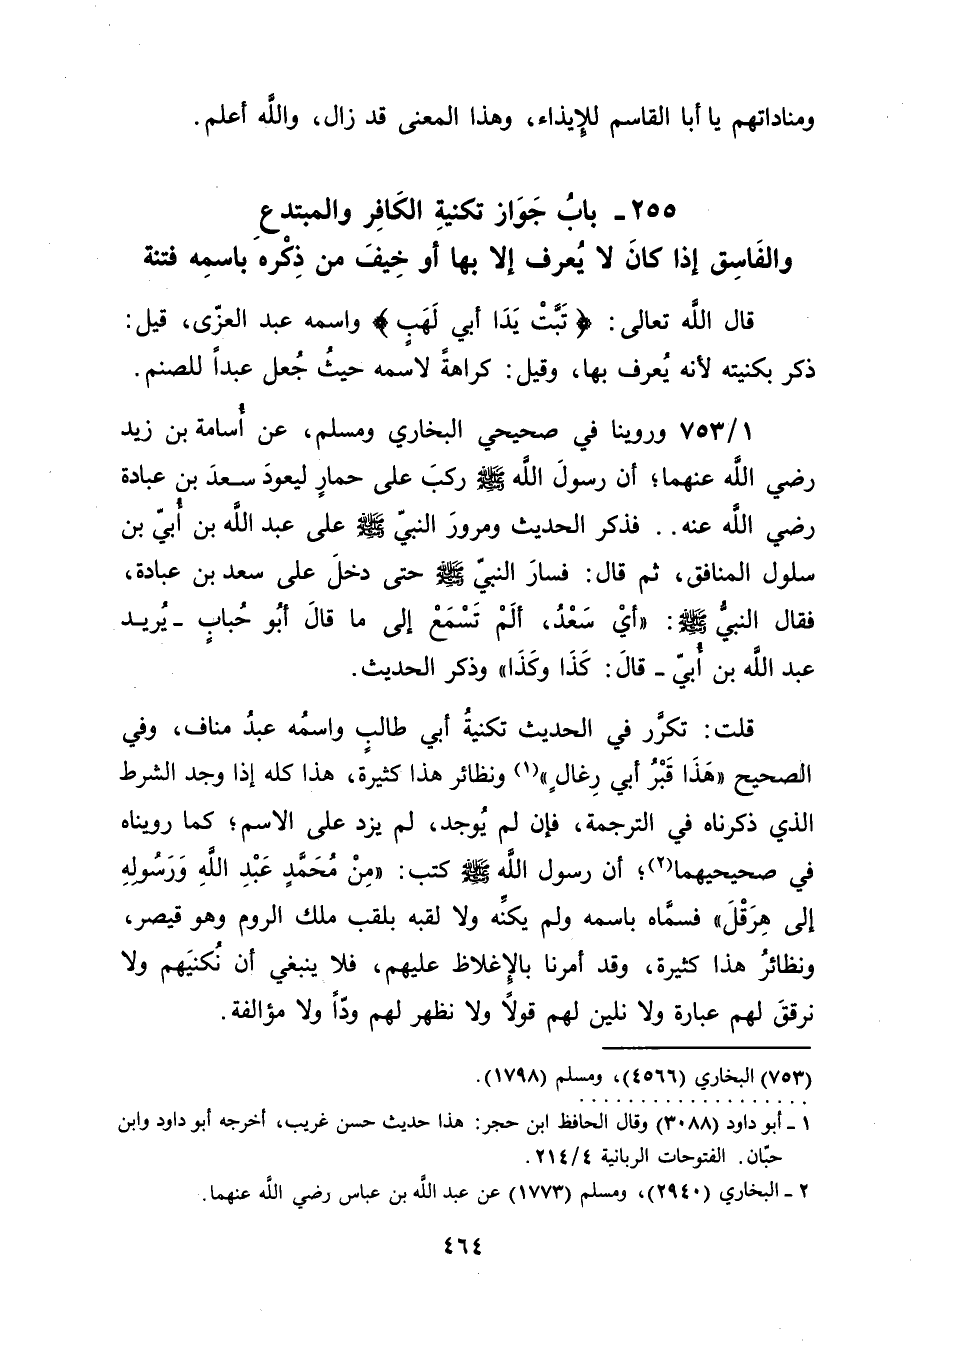 ومناداتهم يا أبا القاسم للإيذاء، وهذا المعنى قد زال، واللَّه أعلم.
٢٥٥ ـ بابُ جَوَاز تكنيةِ الكَافِر والمبتدعِ
والفَاسِق إذا كانَ لا يُعرف إلا بها أو خِيفَ من ذِكْره باسمِه فتنة
قال اللَّه تعالى: ﴿ تَبَّتْ يَدَا أبي لَهَبٍ ﴾ واسمه عبد العزّى، قيل:
ذكر بكنيته لأنه يُعرف بها، وقيل: كراهةً لاسمه حيثُ جُعل عبداً للصنم.
٧٥٣/١ وروينا في صحيحي البخاري ومسلم، عن أُسامة بن زيد
رضي اللَّه عنهما؛ أن رسولَ اللَّه ﷺ ركبَ على حمارٍ ليعودَ سعدَ بن عبادة
رضي اللَّه عنه.. فذكر الحديث ومرورَ النبيّ ﷺ على عبد اللَّه بن أُبيّ بن
سلول المنافق، ثم قال: فسارَ النبيّ ﷺ حتى دخلَ على سعد بن عبادة،
فقال النبيُّ ﷺ: «أيْ سَعْدُ، ألَمْ تَسْمَعْ إلى ما قالَ أبُو حُبابٍ ـ يُريد
عبد اللَّه بن أُبيّ ـ قالَ: كَذَا وكَذَا» وذكر الحديث.
قلت: تكرَّر في الحديث تكنيةُ أبي طالبٍ واسمُه عبدُ مناف، وفي
الصحيح «هَذَا قَبْرُ أبي رِغالٍ»(١) ونظائر هذا كثيرة، هذا كله إذا وجد الشرط
الذي ذكرناه في الترجمة، فإن لم يُوجد، لم يزد على الاسم؛ كما رويناه
في صحيحيهما(٢)؛ أن رسول اللَّه ﷺ كتب: «مِنْ مُحَمَّدٍ عَبْدِ اللَّهِ وَرَسُولِهِ
إلى هِرَقْلَ» فسمَّاه باسمه ولم يكنِّه ولا لقبه بلقب ملك الروم وهو قيصر،
ونظائرُ هذا كثيرة، وقد أمرنا بالإغلاظ عليهم، فلا ينبغي أن نُكنيَهم ولا
نرققَ لهم عبارة ولا نلين لهم قولاً ولا نظهر لهم ودّاً ولا مؤالفة.
(٧٥٣) البخاري (٤٥٦٦)، ومسلم (١٧٩٨).
١ ـ أبو داود (٣٠٨٨) وقال الحافظ ابن حجر: هذا حديث حسن غريب، أخرجه أبو داود وابن
حبّان. الفتوحات الربانية ٢١٤/٤.
٢ ـ البخاري (٢٩٤٠)، ومسلم (١٧٧٣) عن عبد اللَّه بن عباس رضي اللَّه عنهما.
٤٦٤